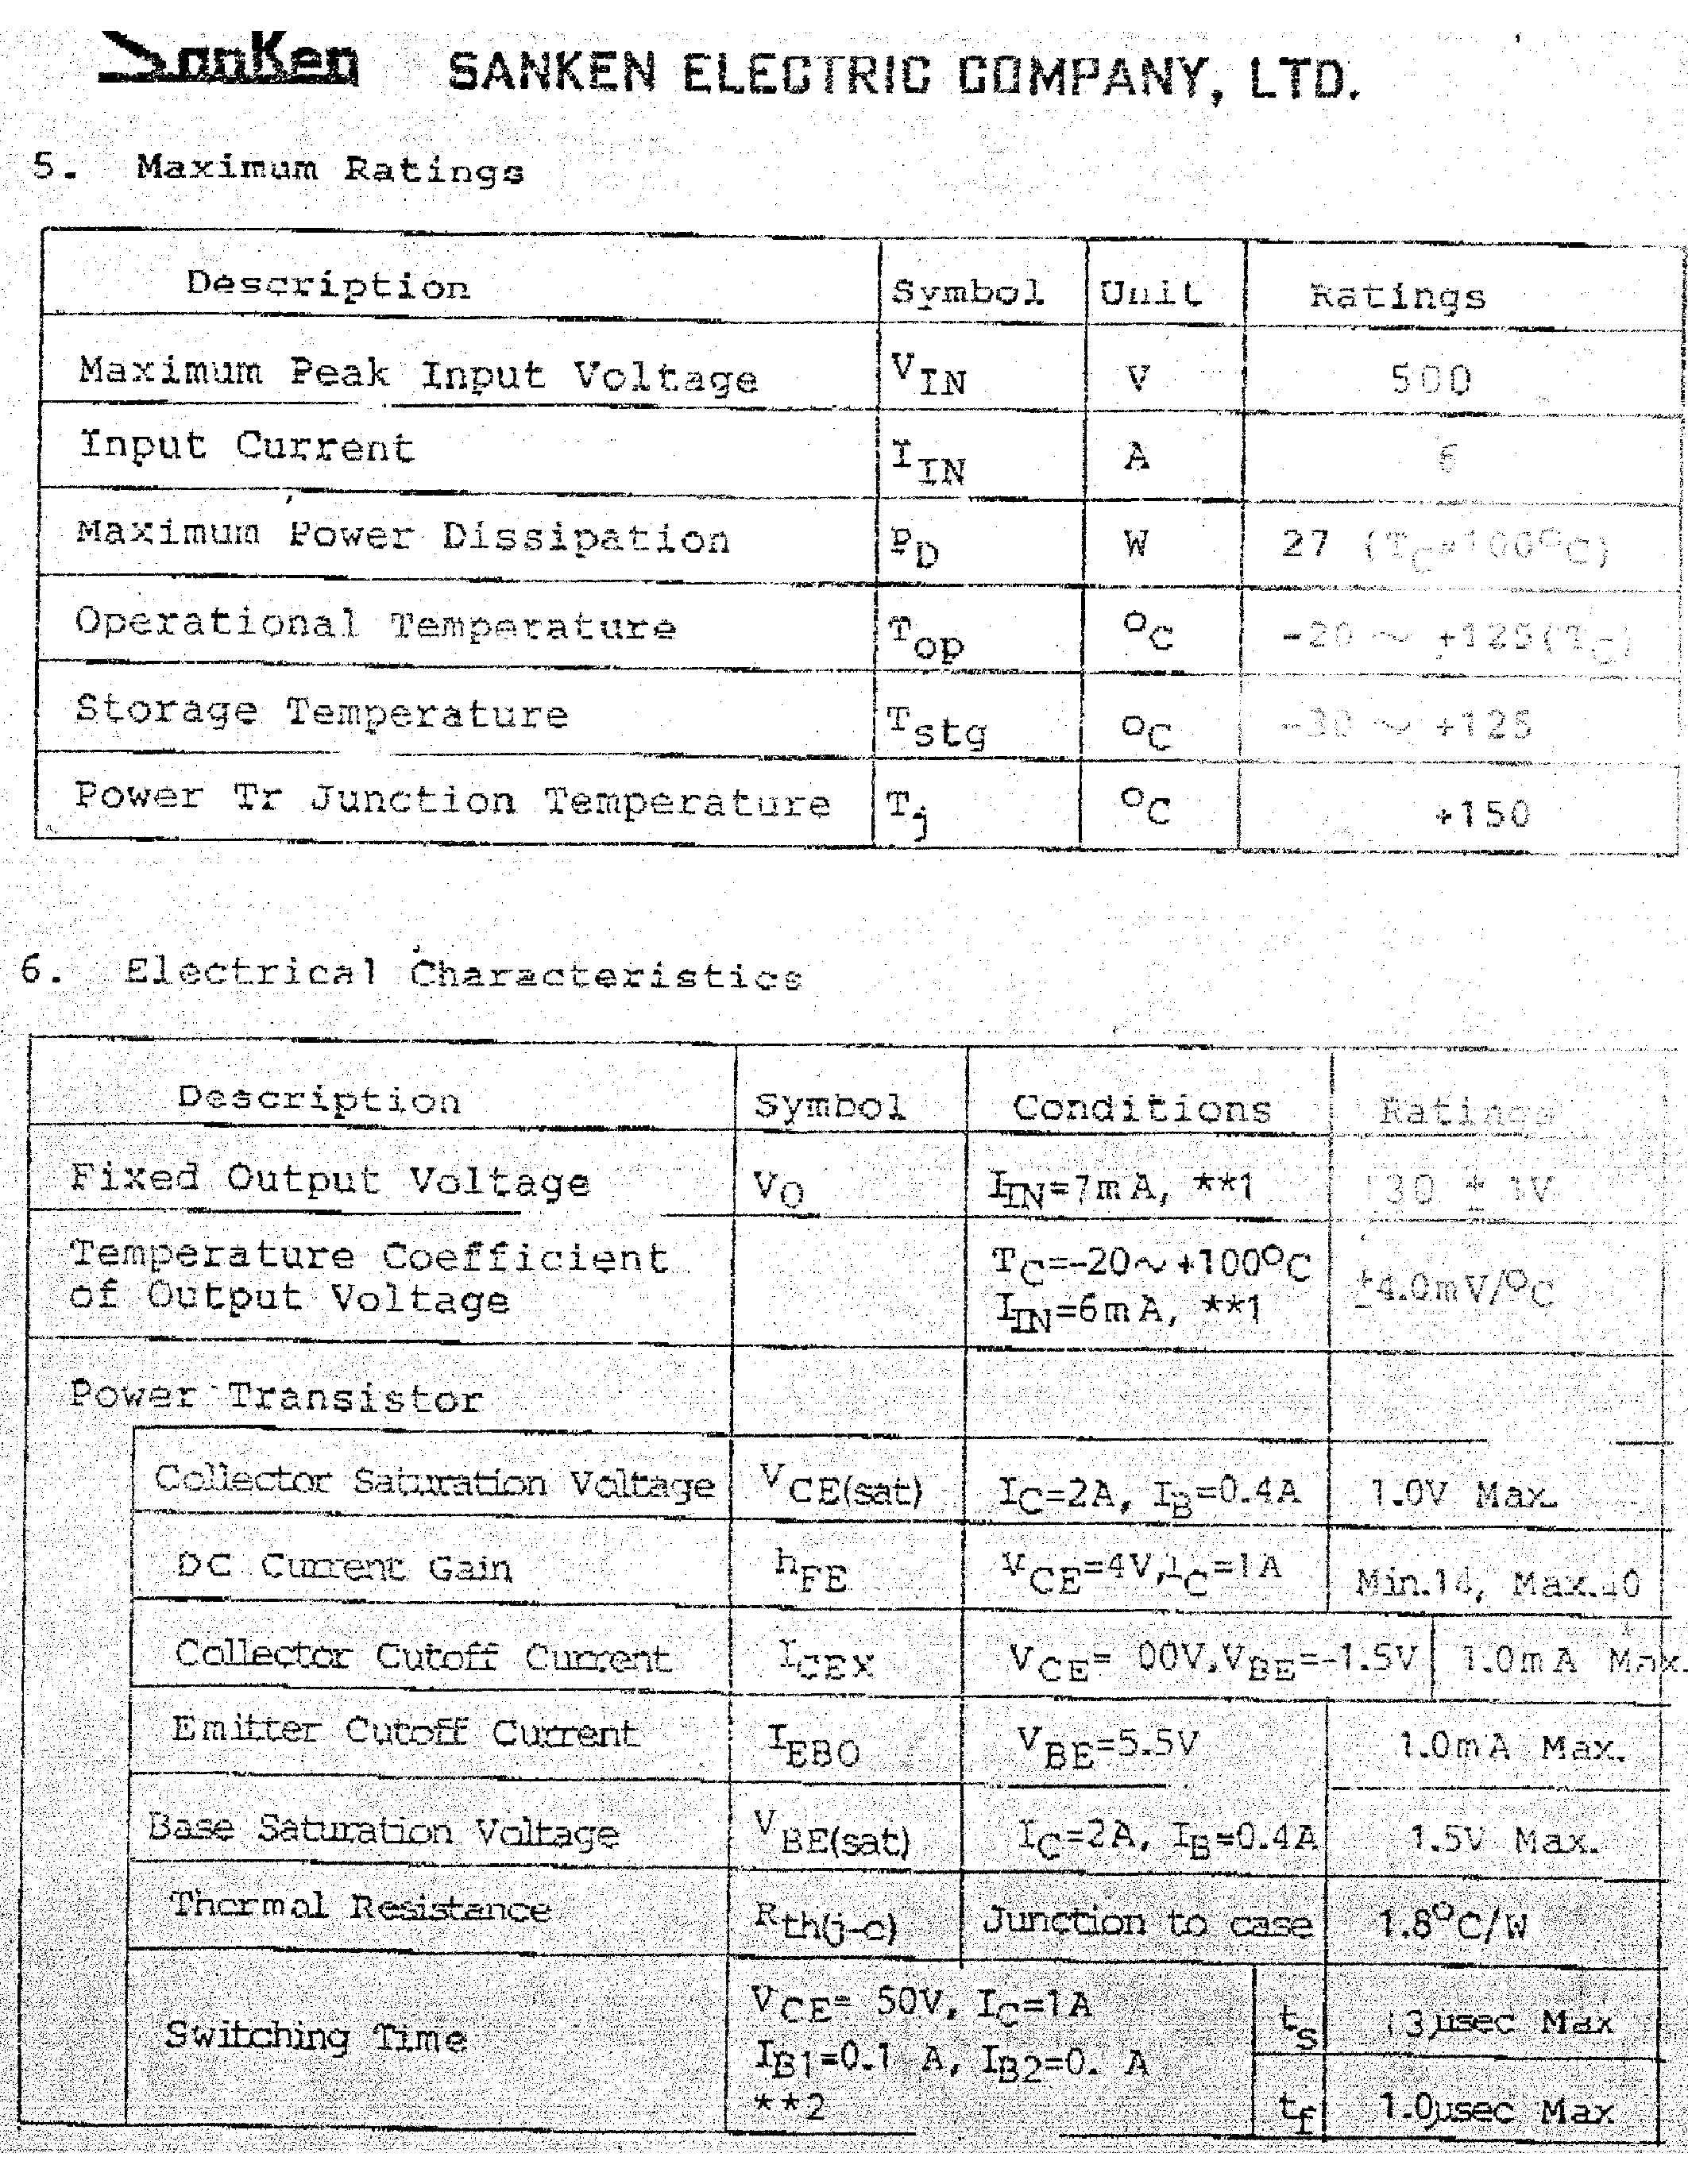 SanKen SANKEN ELECTRIC COMPANY, LTD.
5. Maximum Ratings
Description Symbol Unit Ratings
Maximum Peak Input Voltage VIN V 500
Input Current IIN A 6
Maximum Power Dissipation PD W 27 (TC=100°C)
Operational Temperature Top °C -20 ~ +125(TC)
Storage Temperature Tstg °C -30 ~ +125
Power Tr Junction Temperature Tj °C +150
6. Electrical Characteristics
Description Symbol Conditions Ratings
Fixed Output Voltage VO IIN=7mA, **1 ± 1V
Temperature Coefficient
of Output Voltage
TC=-20~+100°C
IIN=6mA, **1
±4.0mV/°C
Power Transistor
Collector Saturation Voltage VCE(sat) IC=2A, IB=0.4A 1.0V Max.
DC Current Gain hFE VCE=4V,IC=1A Min.14, Max.
Collector Cutoff Current ICEX VCE= 00V,VBE=-1.5V 1.0mA Max.
Emitter Cutoff Current IEBO VBE=5.5V 1.0mA Max.
Base Saturation Voltage VBE(sat) IC=2A, IB=0.4A 1.5V Max.
Thermal Resistance Rth(j-c) Junction to case 1.8°C/W
Switching Time
VCE= 50V, IC=1A
IB1=0.1 A, IB2=0. A
**2
ts µsec Max
tf 1.0µsec Max